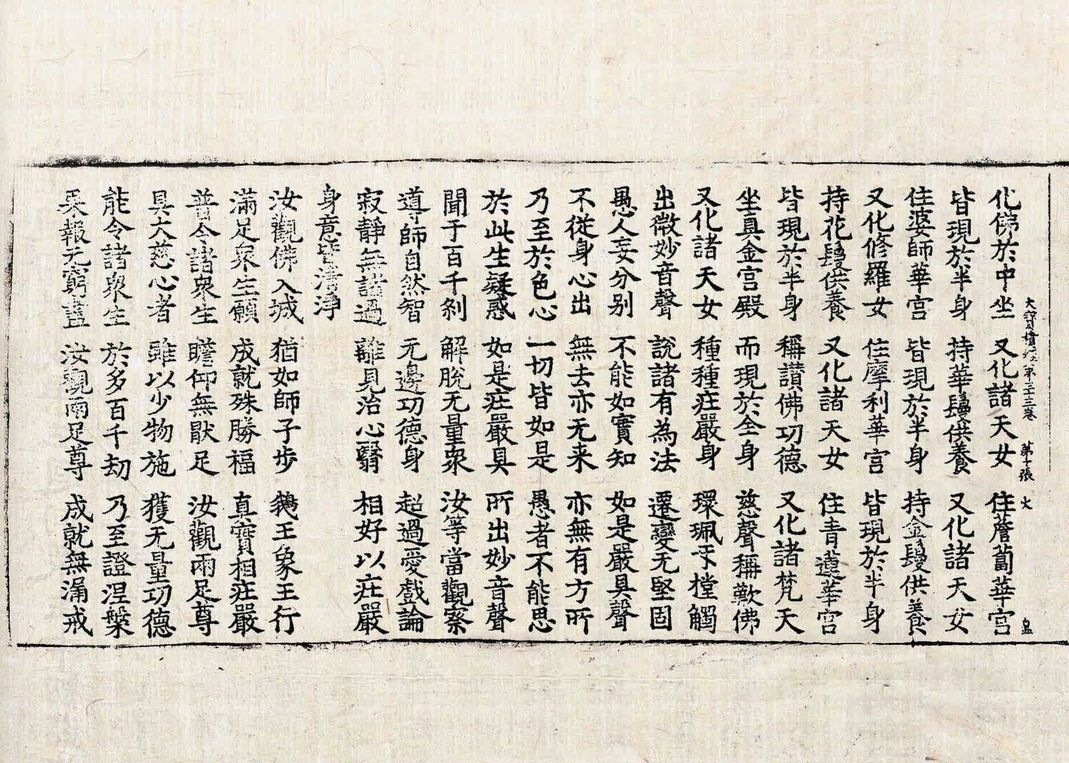 化佛於中坐 又化諸天女 住薝蔔華宮
大寶積經第三十三卷 第十張 火
皆現於半身 持華鬘供養 又化諸天女
住婆師華宮 皆現於半身 持金鬘供養
又化修羅女 住摩利華宮 皆現於半身
持花鬘供養 又化諸天女 住青蓮華宮
皆現於半身 稱讃佛功德 又化諸梵天
坐真金宮殿 而現於全身 慈聲稱歎佛
又化諸天女 種種莊嚴身 環珮互樘觸
出微妙音聲 說諸有為法 遷變无堅固
愚人妄分別 不能如實知 如是嚴具聲
不從身心出 無去亦无来 亦無有方所
乃至於色心 一切皆如是 愚者不能思
於此生疑惑 如是莊嚴具 所出妙音聲
聞于百千剎 解脫无量衆 汝等當觀察
導師自然智 无邊功德身 超過愛戲論
寂靜無諸過 離見治心翳 相好以莊嚴
身意皆清淨
汝觀佛入城 猶如師子步 鵝王象王行
滿足衆生願 成就殊勝福 真寶相莊嚴
普令諸衆生 瞻仰無猒足 汝觀兩足尊
具大慈心者 雖以少物施 獲无量功德
能令諸衆生 於多百千劫 乃至證涅槃
果報无窮盡 汝觀兩足尊 成就無漏戒